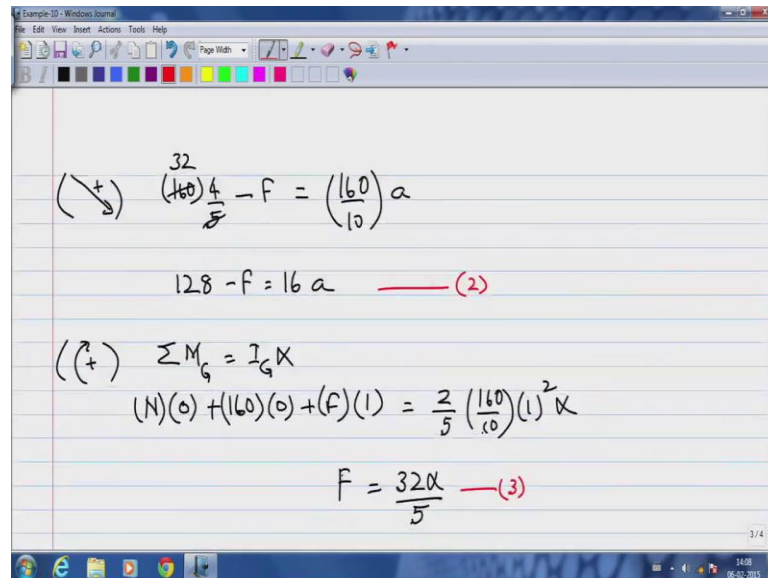 Example-10 - Windows Journal
File Edit View Insert Actions Tools Help
Page Width
B I
32
(↘+) (160) 4/5 - F = (160/10) a
128 - F = 16 a —— (2)
(↻+) Σ M_G = I_G α
(N)(0) + (160)(0) + (F)(1) = 2/5 (160/10) (1)² α
F = 32α/5 —— (3)
3/4
14:08
06-02-2015